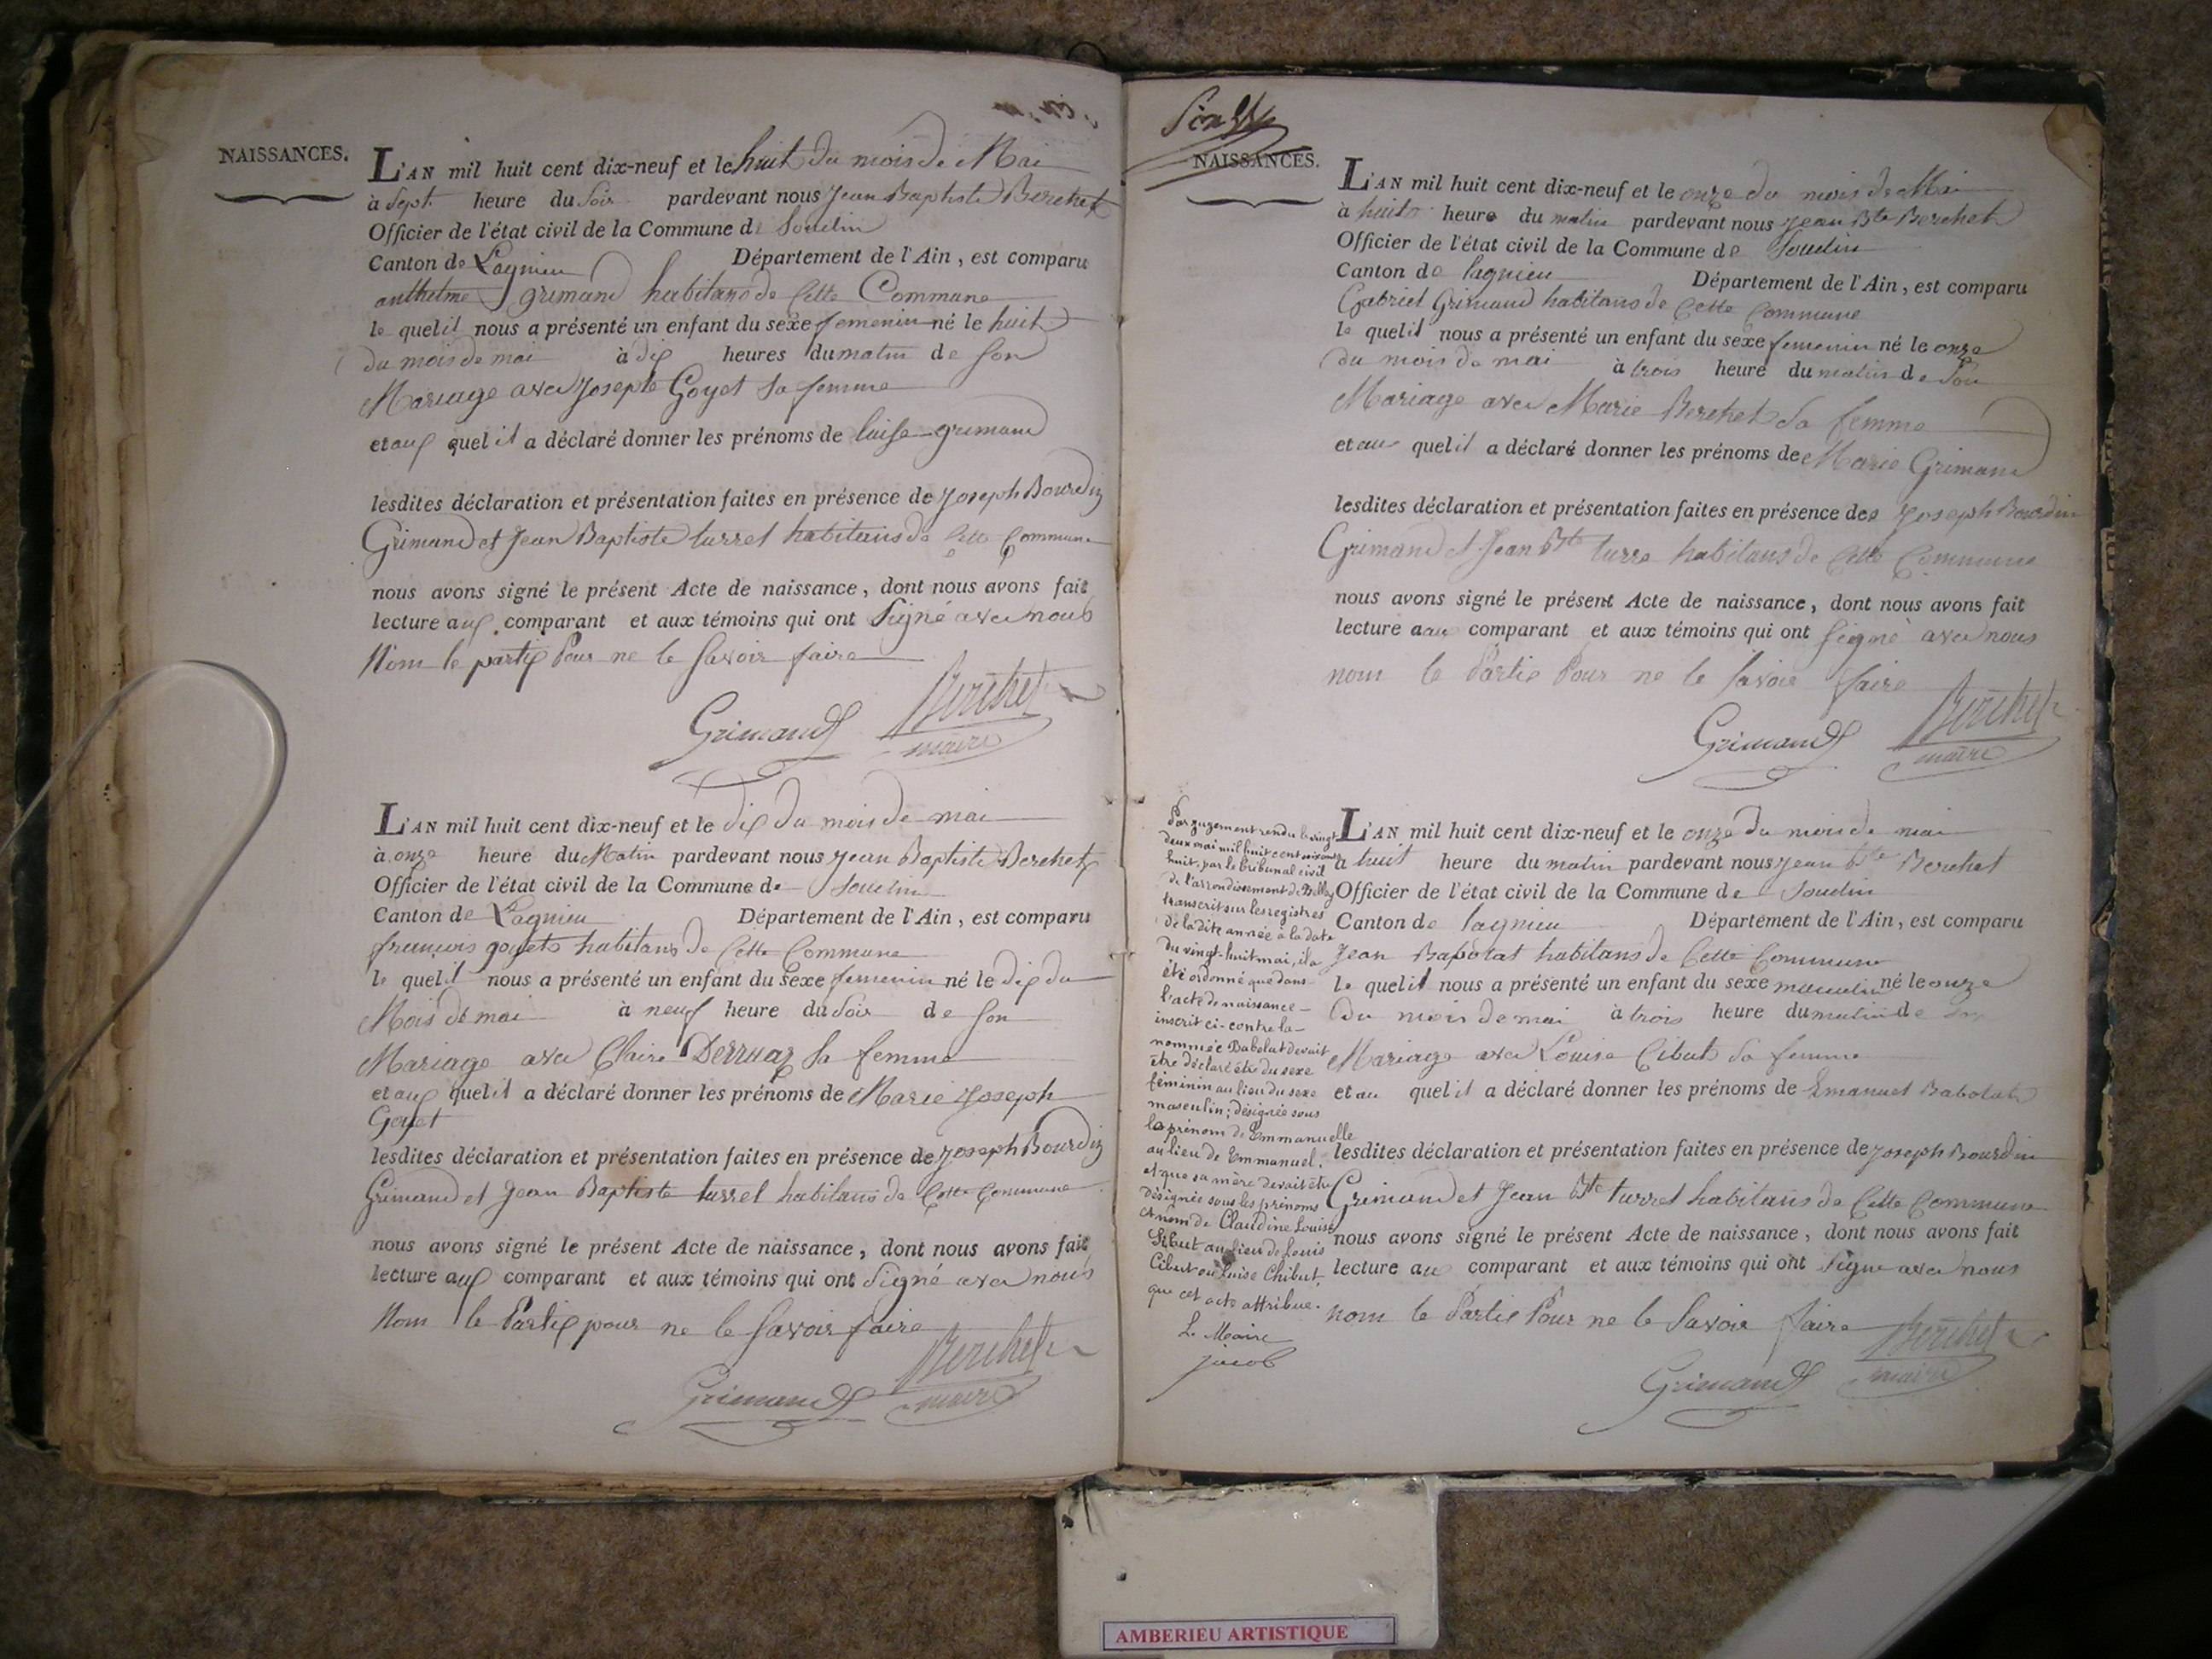 NAISSANCES.
L'AN mil huit cent dix-neuf et le huit du mois de Mai
à Sept heure du Soir pardevant nous Jean Baptiste Berchet
Officier de l'état civil de la Commune de Soudin
Canton de Lagnieu Département de l'Ain, est comparu
anthelme grimand habitans de Cette Commune
le quel il nous a présenté un enfant du sexe femenin né le huit
du mois de mai à dix heures du matin de Son
Mariage avec Josepte Goyet Sa femme
et aux quel il a déclaré donner les prénoms de luise grimand
lesdites déclaration et présentation faites en présence de Joseph Bourdin
Grimand et Jean Baptiste turrel habitans de Cette Commune
nous avons signé le présent Acte de naissance, dont nous avons fait
lecture aux comparant et aux témoins qui ont Signé avec nous
Nom le partix Pour ne le Savoir faire
Grimand Berchet
maire
L'AN mil huit cent dix-neuf et le dix du mois de mai
à onze heure du Matin pardevant nous Jean Baptiste Berchet
Officier de l'état civil de la Commune de Soudin
Canton de Lagnieu Département de l'Ain, est comparu
francois goyet habitans de Cette Commune
le quel il nous a présenté un enfant du sexe femenin né le dix du
Mois de mai à neuf heure du Soir de Son
Mariage avec Claire Derruaz Sa femme
et aux quel il a déclaré donner les prénoms de Marie Joseph
Goyet
lesdites déclaration et présentation faites en présence de Joseph Bourdin
Grimand et Jean Baptiste turrel habitans de Cette Commune
nous avons signé le présent Acte de naissance, dont nous avons fait
lecture aux comparant et aux témoins qui ont Signé avec nous
Nom le Partix pour ne le Savoir faire
Grimand Berchet
maire
NAISSANCES.
L'AN mil huit cent dix-neuf et le onze du mois de Mai
à huit heure du matin pardevant nous Jean Bte Berchet
Officier de l'état civil de la Commune de Soudin
Canton de lagnieu Département de l'Ain, est comparu
Gabriel Grimand habitans de Cette Commune
le quel il nous a présenté un enfant du sexe femenin né le onze
du mois de mai à trois heure du matin de Son
Mariage avec Marie Berchet Sa femme
et au quel il a déclaré donner les prénoms de Marie Grimand
lesdites déclaration et présentation faites en présence de Joseph Bourdin
Grimand et Jean Bte turre habitans de Cette Commune
nous avons signé le présent Acte de naissance, dont nous avons fait
lecture a au comparant et aux témoins qui ont Signé avec nous
nom le Partie Pour ne le Savoir faire
Grimand Berchet
maire
Par jugement rendu le vingt
deux mai mil huit cent soixante
huit, par le tribunal civil
de l'arrondissement de Belley
transcrit sur les registres
de la dite année à la date
du vingt-huit mai, il a
été ordonné que dans
l'acte de naissance
inscrit ci-contre la
nommée Babolat devait
être déclaré être du sexe
féminin au lieu du sexe
masculin; désignée sous
le prénom de Emmanuelle
au lieu de Emmanuel,
et que sa mère devait être
désignée sous les prénoms
et nom de Claudine Louise
Sibut au lieu de Louis
Cibut ou Luise Chibut,
que cet acte attribue.
Le Maire
Jacob
L'AN mil huit cent dix-neuf et le onze du mois de mai
à huit heure du matin pardevant nous Jean Bte Berchet
Officier de l'état civil de la Commune de Soudin
Canton de lagnieu Département de l'Ain, est comparu
Jean Babolat habitans de Cette Commune
le quel il nous a présenté un enfant du sexe masculin né le onze
du mois de mai à trois heure du matin de
Mariage avec Louise Cibut Sa femme
et au quel il a déclaré donner les prénoms de Emanuel Babolat
lesdites déclaration et présentation faites en présence de Joseph Bourdin
Grimand et Jean Bte turrel habitans de Cette Commune
nous avons signé le présent Acte de naissance, dont nous avons fait
lecture au comparant et aux témoins qui ont Signe avec nous
nom le Partie Pour ne le Savoir faire
Grimand Berchet
maire
AMBERIEU ARTISTIQUE